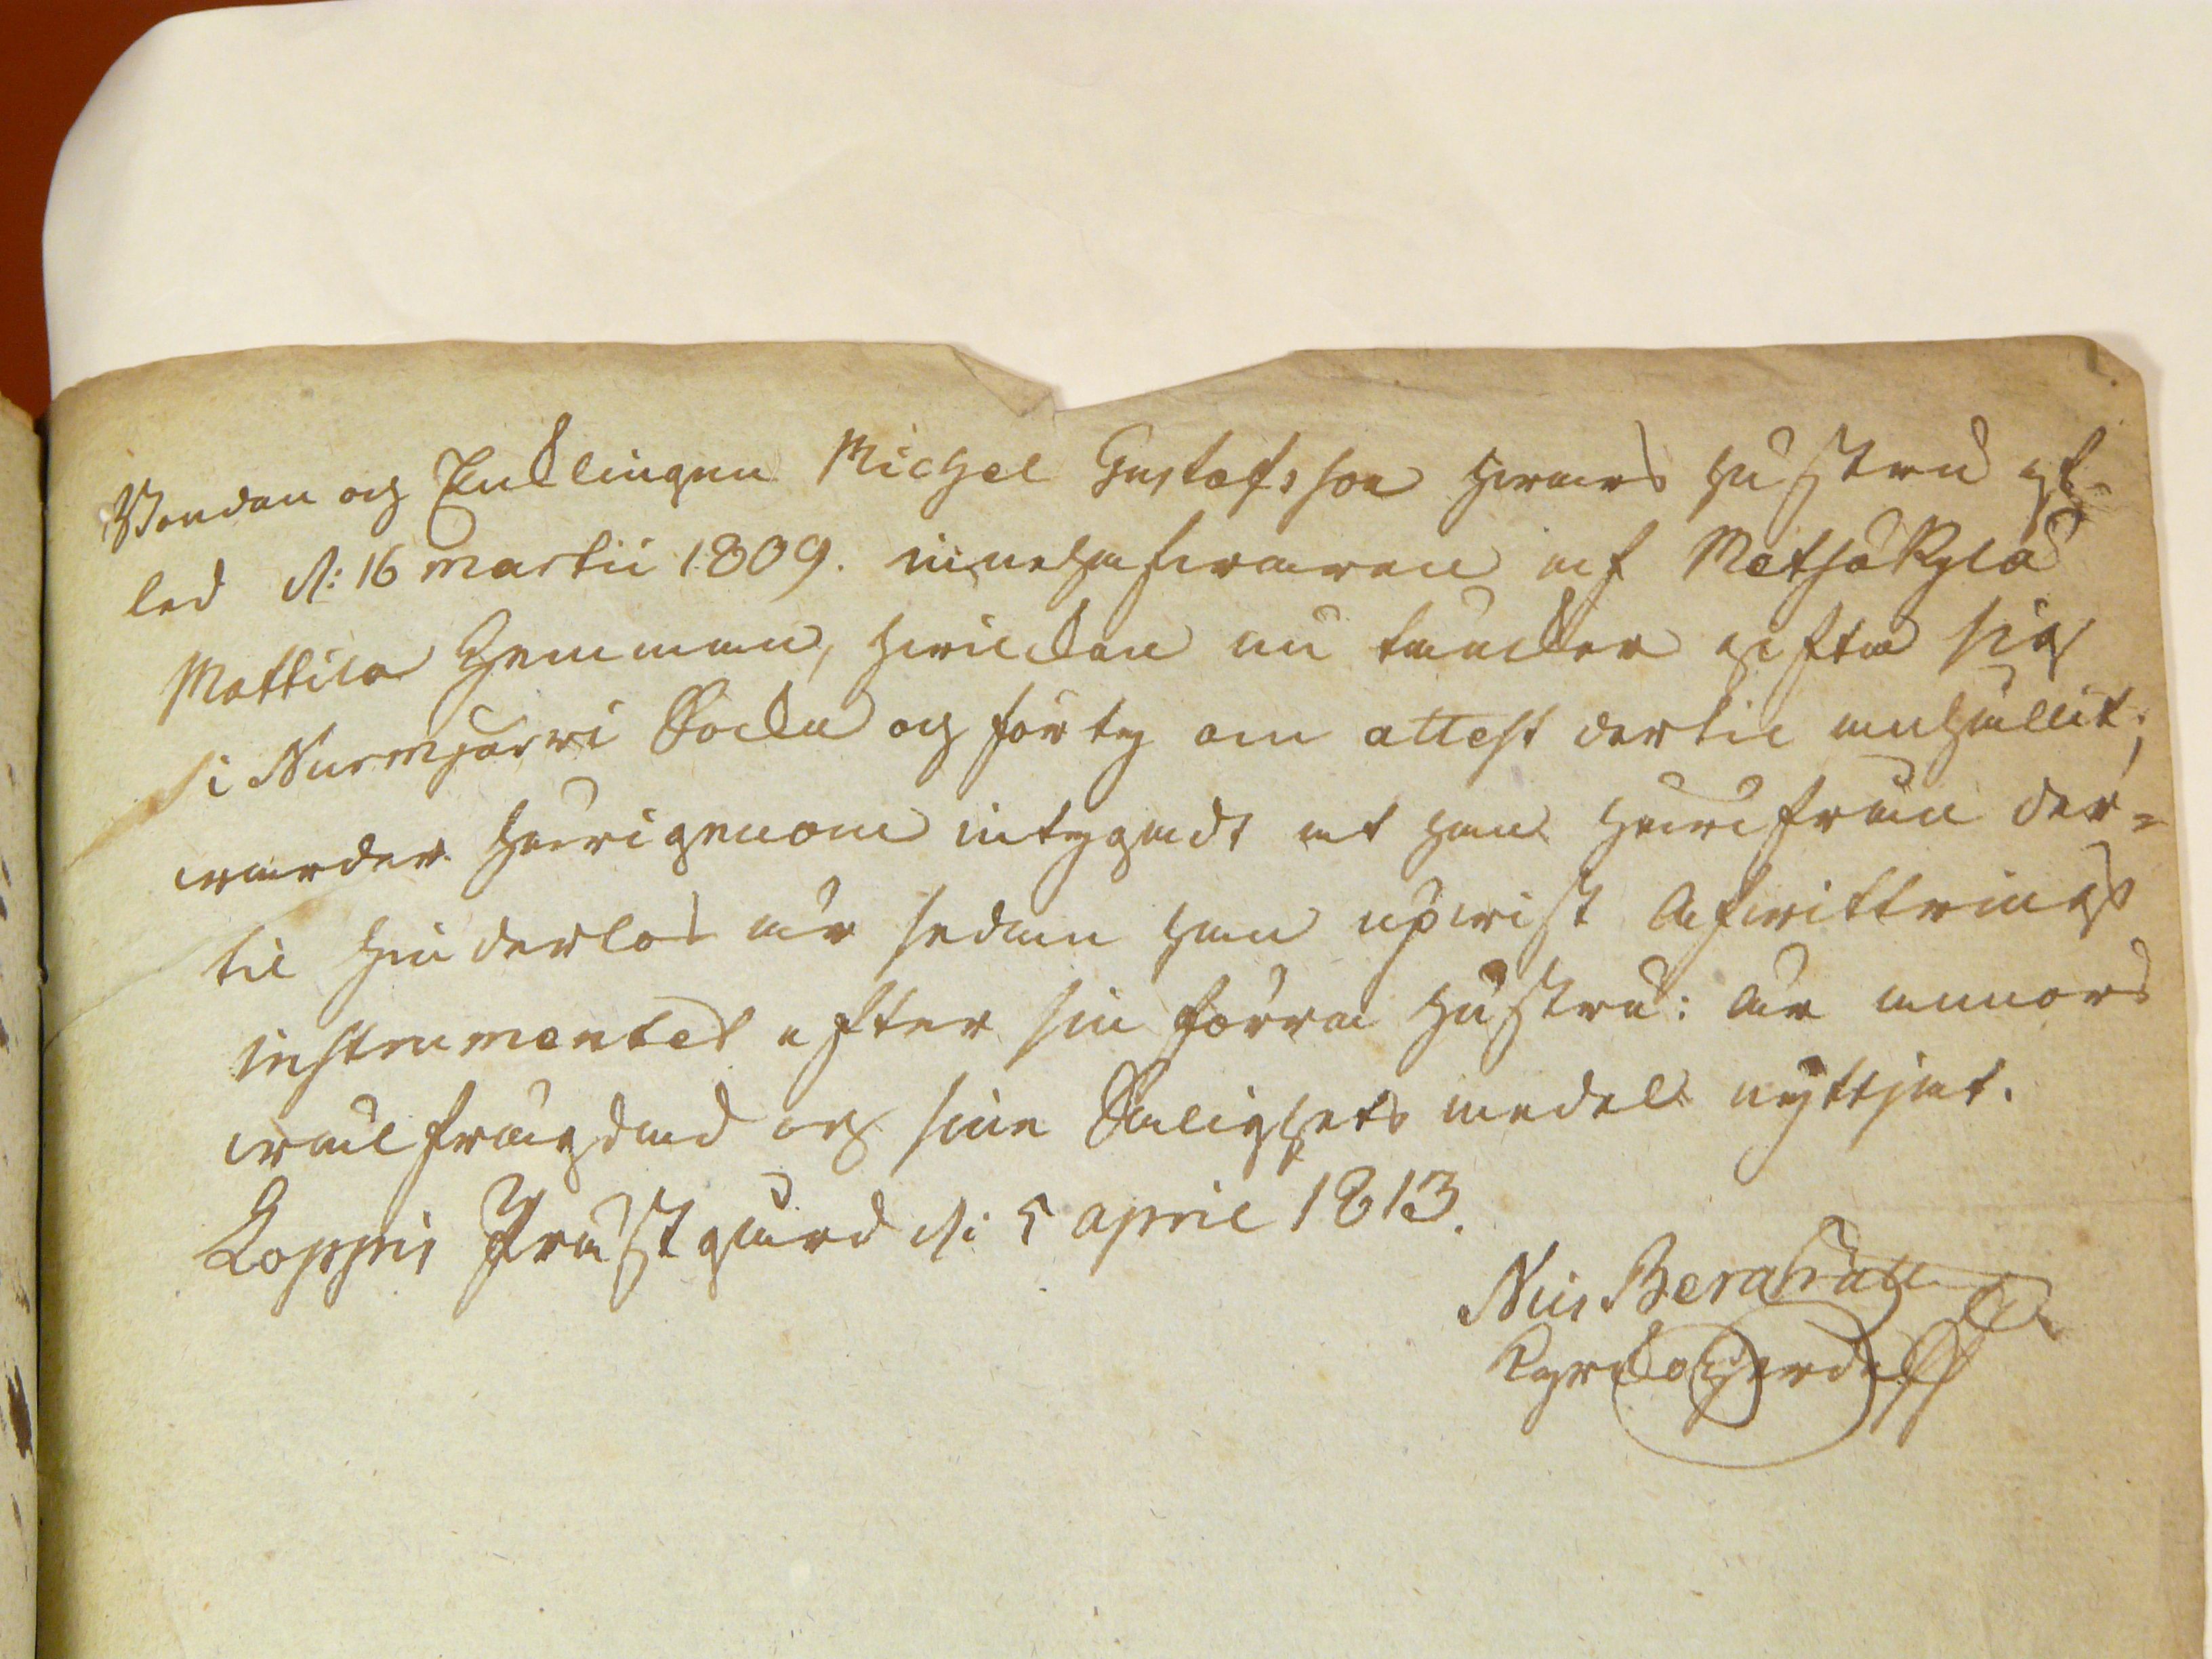 Bonden och Enklingen Michel Gustafsson hwars hustru af-
led d: 16 martii 1809. innehafwaren af Metsäkylä
Mattila Hemman, hwilken nu tänker gifta sig
i Nurmijärwi Sockn och förty om attest dertil anhållit;
warder härigenom intygadt at han härifrån der-
til hinderlös är sedan han upwist Afwittrings
instrumentet efter sin förra hustru: är annors
wälfrägdad och sine Salighets medel nyttjat.
Loppis Prästgård d: 5 april 1813.
Nils Bergwall
Kyrkoherde